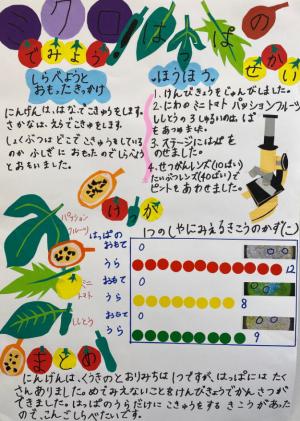 ミクロはっぱの
せかい
でみよう
しらべようと
おもったきっかけ
にんげんは、はなでこきゅうをします。
さかなは、えらでこきゅをします。
しょくぶつはどこでこきゅうをしている
のか ふしぎに おもたのでしらべら
とおもいました。
ほうほう。
1. けんびきょうをじゅんびしました。
2. にわの ミニトマト パッションフルーツ
ししとうの 3しゅるいのは、ぱ
を あつめました。
3. ステージにはっぱを
のせました。
4. せつがんレンズ(10ばい)
たいぶつレンズ(40ばい)で
ピントをあわせました。
けっか
1つのしゃにみえるきこうのかず(こ)
パッション
フルーツ
はっぱの
おもて
0
うら
12
ミニ
トマト
おもて
0
うら
8
ししとう
おもて
0
うら
9
まとめ
にんげんは、くうきのとおりみちは1つですが、はっぱには たく
さんありました。めでみえないことをけんびきょうでかんさつが
できました。はっぱのうらだけにこきゅうをする きこうがあった
ので、こんごしらべたいです。